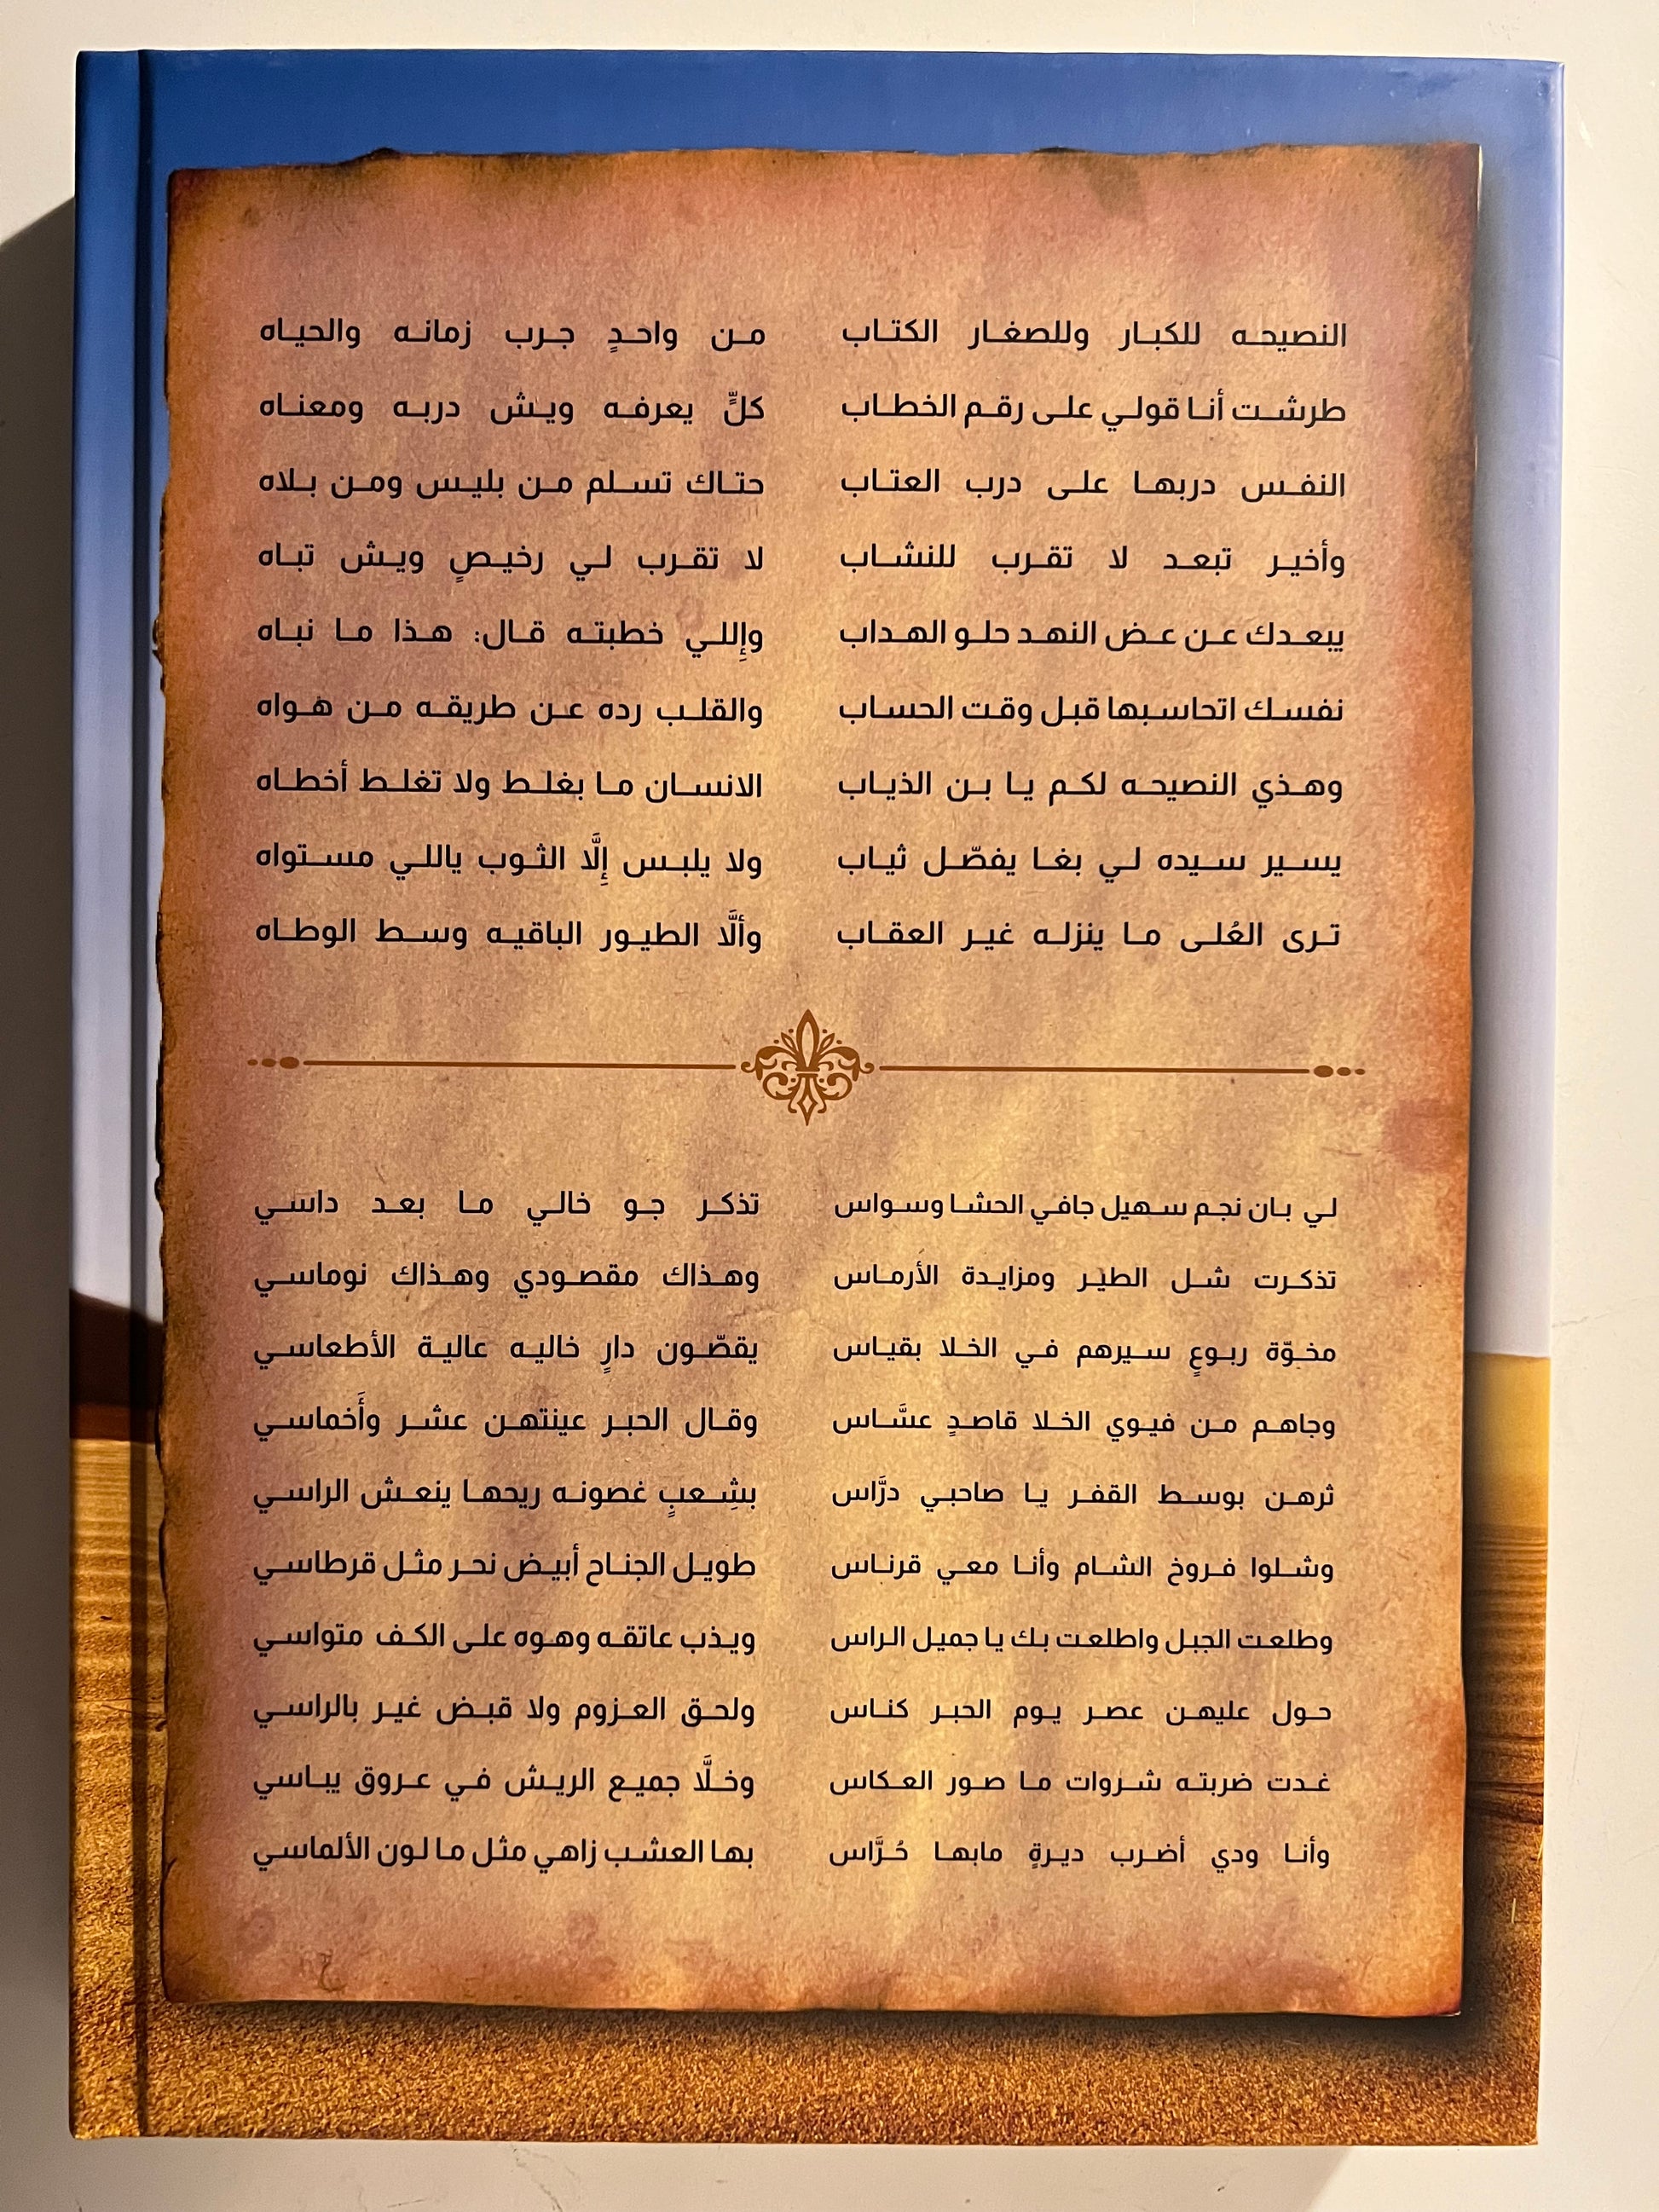 النصيحه للكبار وللصغار الكتاب من واحدٍ جرب زمانه والحياه
طرشت أنا قولي على رقم الخطاب كلٍّ يعرفه ويش دربه ومعناه
النفس دربها على درب العتاب حتاك تسلم من بليس ومن بلاه
وأخير تبعد لا تقرب للنشاب لا تقرب لي رخيصٍ ويش تباه
يبعدك عن عض النهد حلو الهداب وإللي خطبته قال: هذا ما نباه
نفسك اتحاسبها قبل وقت الحساب والقلب رده عن طريقه من هواه
وهذي النصيحه لكم يا بن الذياب الانسان ما بغلط ولا تغلط أخطاه
يسير سيده لي بغا يفصّل ثياب ولا يلبس إلَّا الثوب ياللي مستواه
ترى العُلى ما ينزله غير العقاب وألَّا الطيور الباقيه وسط الوطاه
لي بان نجم سهيل جافي الحشا وسواس تذكر جو خالي ما بعد داسي
تذكرت شل الطير ومزايدة الأرماس وهذاك مقصودي وهذاك نوماسي
مخوّة ربوعٍ سيرهم في الخلا بقياس يقصّون دارٍ خاليه عالية الأطعاسي
وجاهم من فيوي الخلا قاصدٍ عسَّاس وقال الحبر عينتهن عشر وأَخماسي
ثرهن بوسط القفر يا صاحبي درَّاس بشِعبٍ غصونه ريحها ينعش الراسي
وشلوا فروخ الشام وأنا معي قرناس طويل الجناح أبيض نحر مثل قرطاسي
وطلعت الجبل واطلعت بك يا جميل الراس ويذب عاتقه وهوه على الكف متواسي
حول عليهن عصر يوم الحبر كناس ولحق العزوم ولا قبض غير بالراسي
غدت ضربته شروات ما صور العكاس وخلَّا جميع الريش في عروق يباسي
وأنا ودي أضرب ديرةٍ مابها حُرَّاس بها العشب زاهي مثل ما لون الألماسي